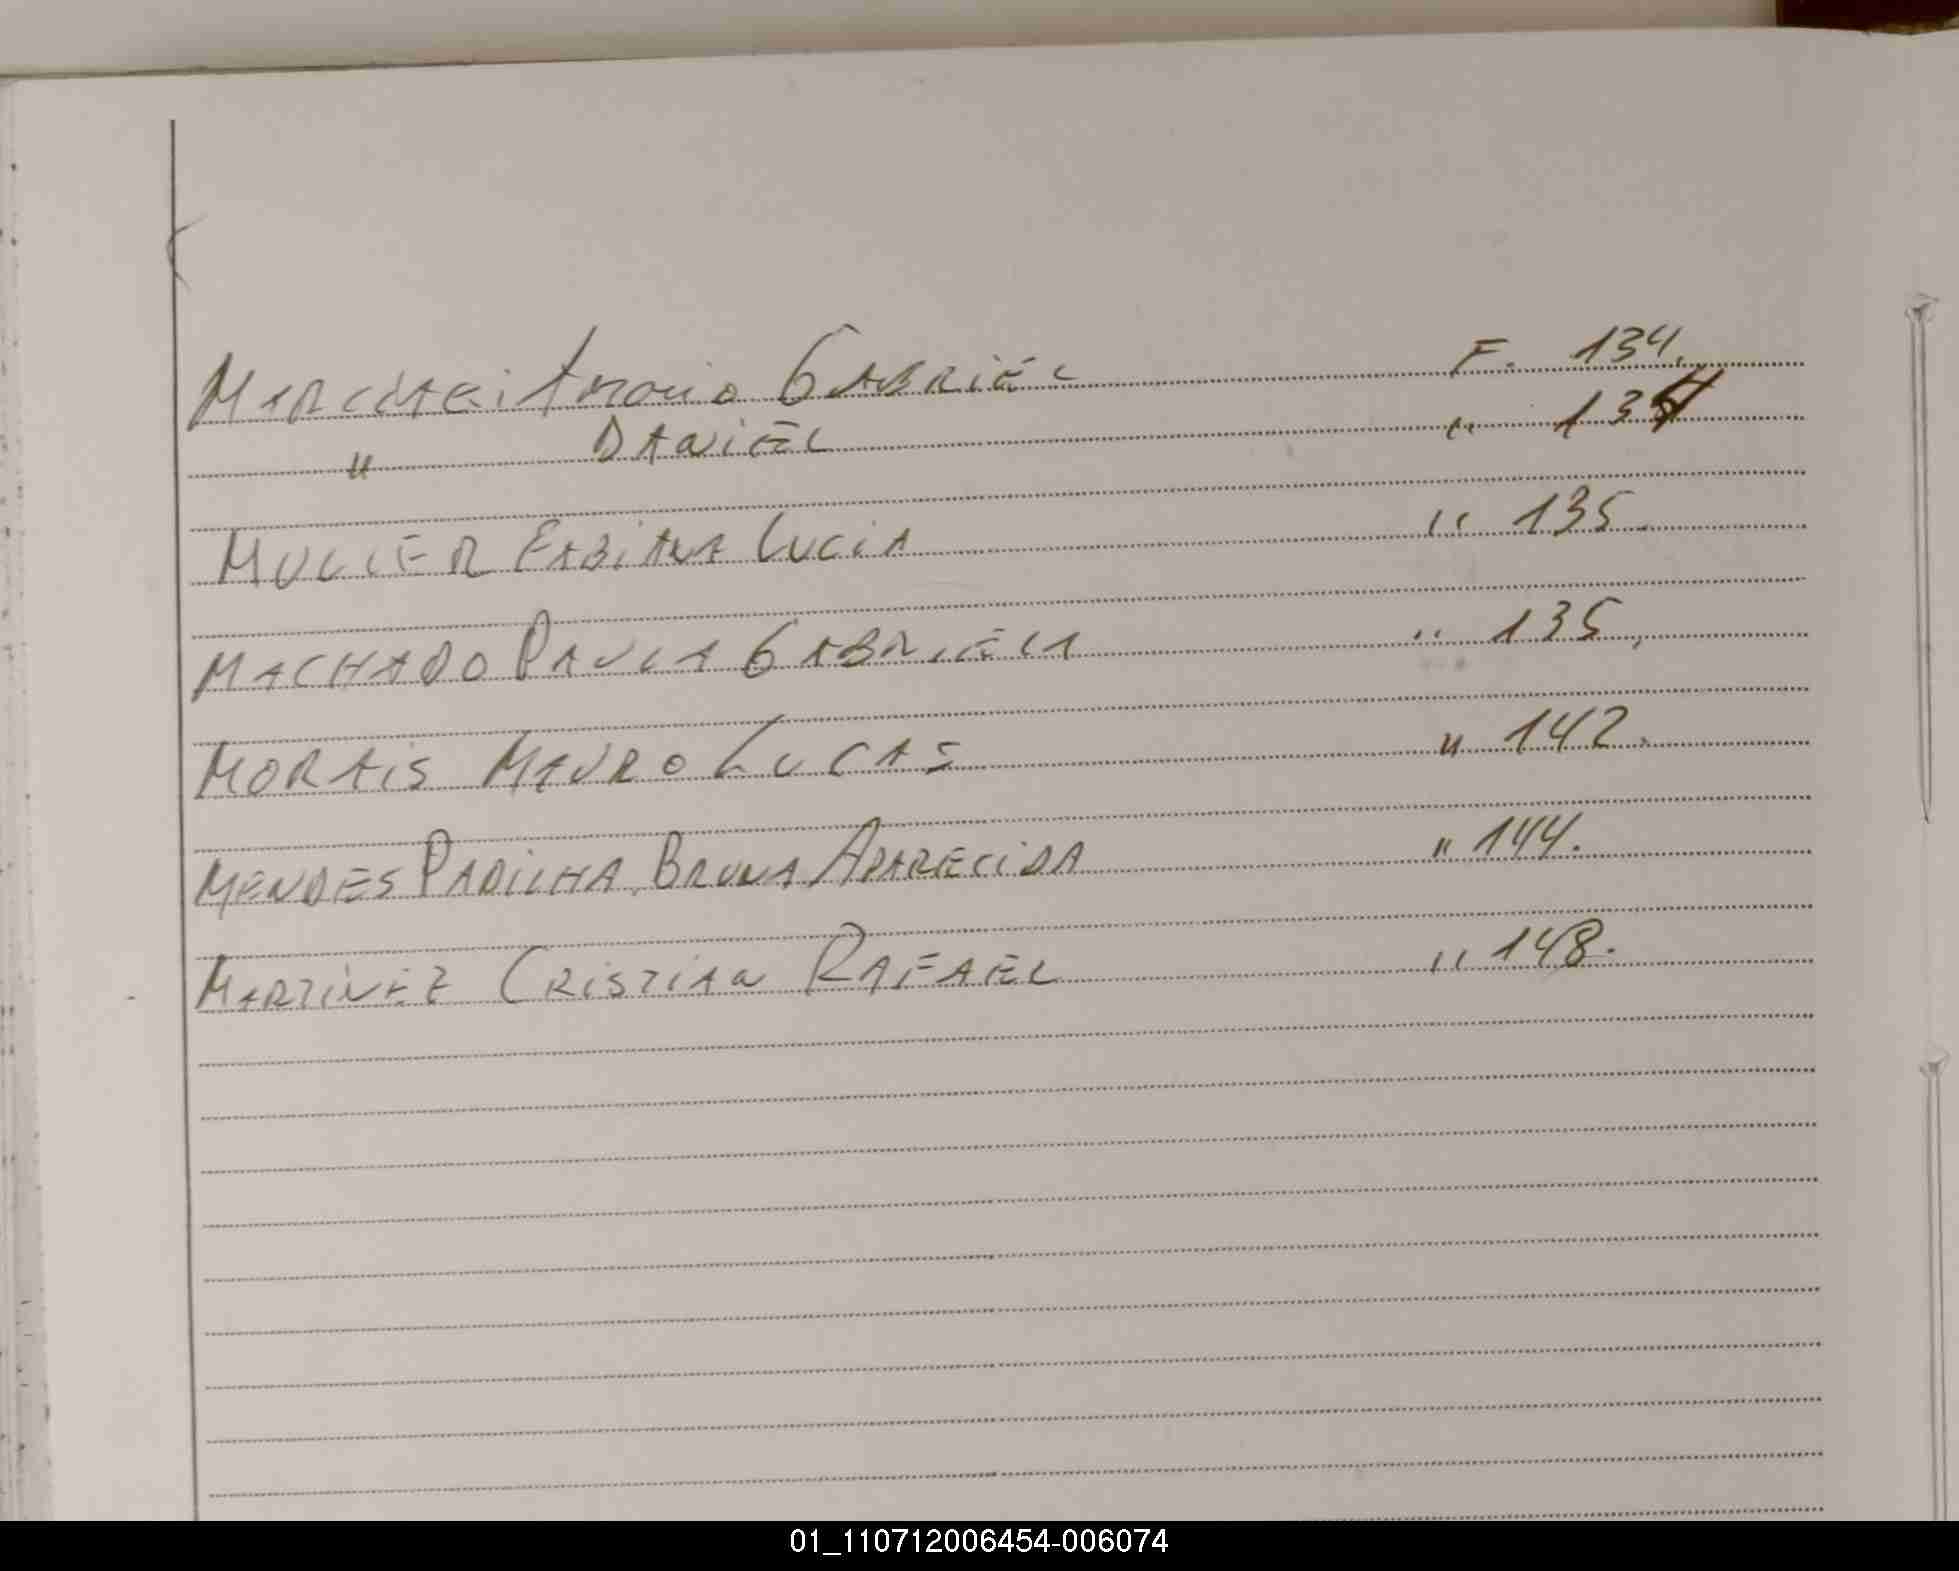 MARCHERi Antonio GABRiEL F. 134.
" DANiEL " 134
MULLER FABiANA LUCiA " 135.
MACHADO PAULA GABRiELA " 135.
MORAiS MAURO LUCAS " 142.
MENDES PADiLHA BRUNA APARECiDA " 144.
MARTiNEZ CRiSTiAN RAFAEL " 148.
01_110712006454-006074